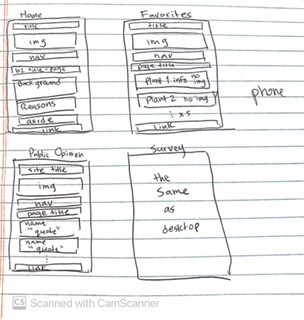 Home
title
img
nav
h2 title-page
Background
Reasons
aside
Link
Favorites
title
img
nav
page title
Plant 1 info no img
Plant 2 no img
⋮ x5
Link
phone
Public Opinion
site title
img
nav
page title
name
"quote"
name
"quote"
⋮
Link
Survey
the
same
as
desktop
CS Scanned with CamScanner